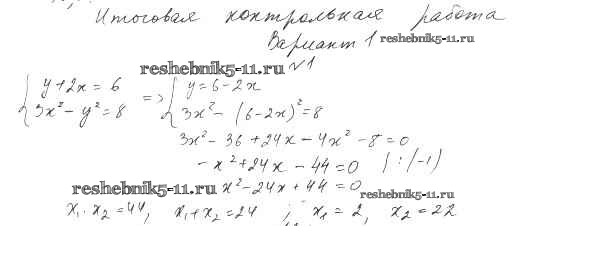 Итоговая контрольная работа
Вариант 1 reshebnik5-11.ru
reshebnik5-11.ru №1
{ y+2x=6 => { y=6-2x
3x²-y²=8 3x²-(6-2x)²=8
3x²-36+24x-4x²-8=0
-x²+24x-44=0 |:(-1)
reshebnik5-11.ru x²-24x+44=0 reshebnik5-11.ru
x₁·x₂=44, x₁+x₂=24 ; x₁=2, x₂=22